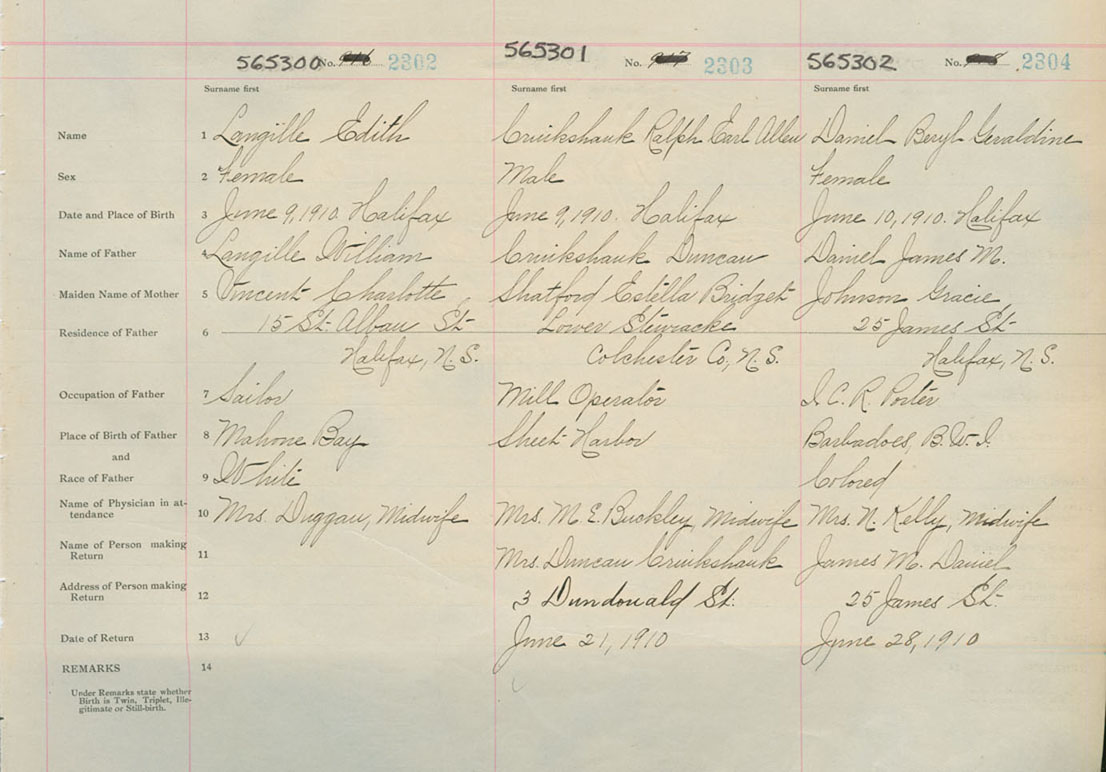 565300 No. 2302 565301 No. 2303 565302 No. 2304
Surname first Surname first Surname first
Name 1 Langille Edith Cruikshank Ralph Earl Allen Daniel Beryl Geraldine
Sex 2 Female Male Female
Date and Place of Birth 3 June 9, 1910. Halifax June 9, 1910. Halifax June 10, 1910. Halifax
Name of Father 4 Langille William Cruikshank Duncan Daniel James M.
Maiden Name of Mother 5 Vincent Charlotte Shatford Estella Bridget Johnson Gracie
Residence of Father 6 15 St. Alban St. Lower Stewiacke 25 James St.
Halifax, N.S. Colchester Co, N.S. Halifax, N.S.
Occupation of Father 7 Sailor Mill Operator I.C.R. Porter
Place of Birth of Father 8 Mahone Bay Sheet Harbor Barbadoes, B.W.I.
and
Race of Father 9 White Colored
Name of Physician in at-
tendance 10 Mrs. Duggan, Midwife Mrs. M. E. Buckley, Midwife Mrs. N. Kelly, Midwife
Name of Person making
Return 11 Mrs. Duncan Cruikshank James M. Daniel
Address of Person making
Return 12 3 Dundonald St. 25 James St.
Date of Return 13 June 21, 1910 June 28, 1910
REMARKS 14
Under Remarks state whether
Birth is Twin, Triplet, Ille-
gitimate or Still-birth.